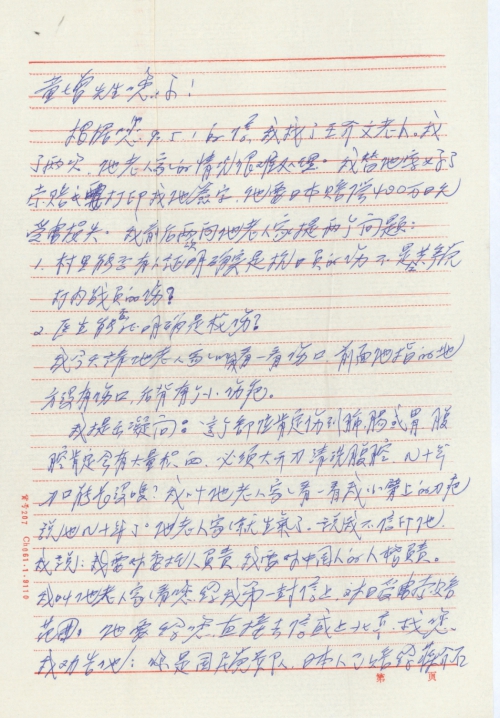 童增先生您好！
根据您9.5.1的信，我找了王介文老人。我
了两次，他老人家的情况很难处理。我替他写好了
索赔，打印我他签字，他要日本赔偿400万日元
受害损失。我前后两次向他老人家提两个问题：
1. 村里能否有人证明确实是抗日负的伤，不是共军
打内战负的伤？
2. 医生能否证明确是枪伤？
我今天请他老人家看一看伤口，前面他指的地
方没有伤口，后背有个小伤疤。
我提出疑问。这个部位肯定伤到肺、肠或胃，腹
腔肯定会有大量积血，必须大开刀清洗腹腔，几十年
刀口能长没喽？我叫他老人家看一看我小臂上的刀疤
说也几十年了。他老人家就生气了。说我不信任他。
我说：我要对委托人负责，我要对中国人的人格负责。
我叫他老人家看您给我第一封信上，对日受害索赔
范围。他要给您直接去信或上北京找您。
我劝告他：你是国民党军队，日本人已赔给蒋介石
第 页